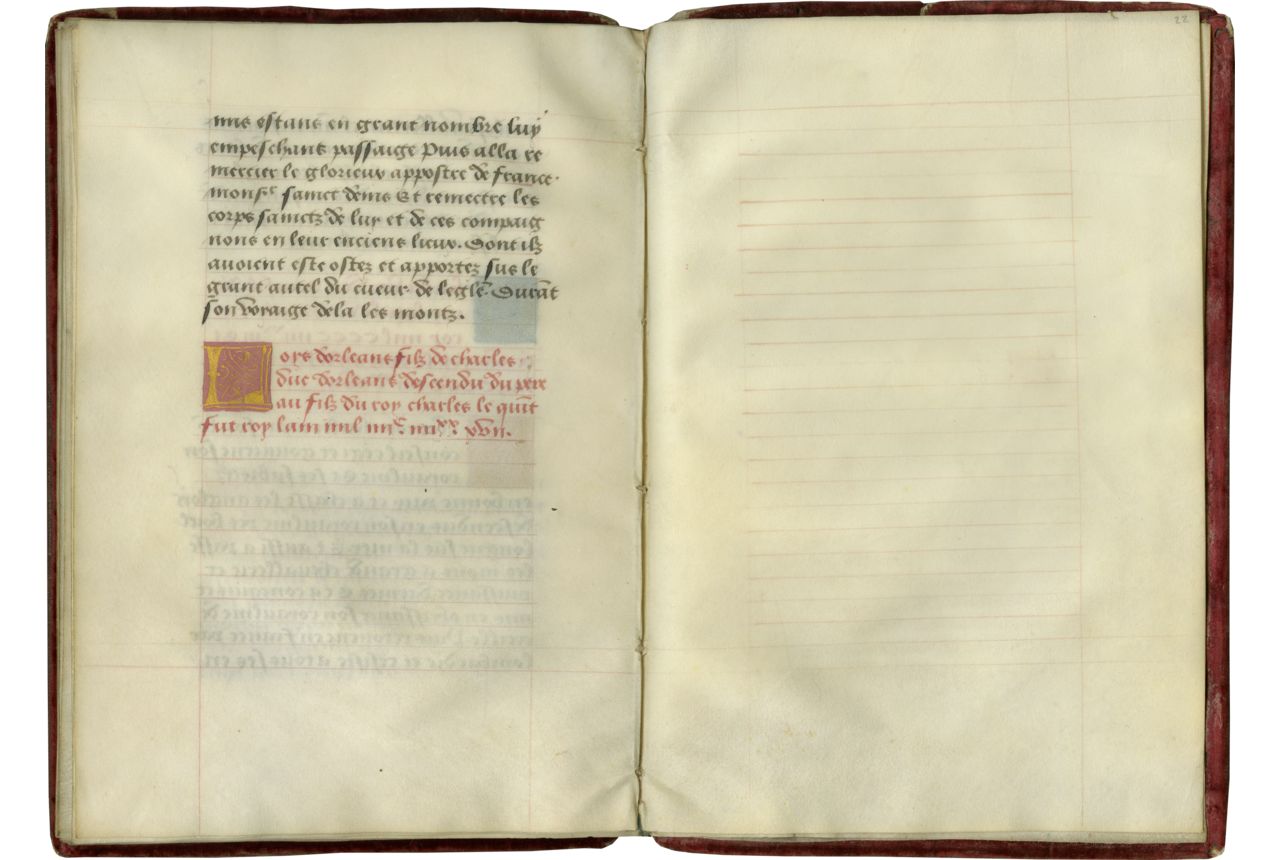 mis estans en grant nombre luy
empeschans passaige Puis alla re
mercier le glorieux appostre de france.
monsr sainct denis Et remectre les
corps sainctz de luy et de ces compaig
nons en leur enciens lieux. Dont ilz
avoient este ostez et apportez sus le
grant autel du cueur de leglē. Durāt
son voiaige dela les montz.
Loys dorleans filz de charles
duc dorleans descendu du pere
au filz du roy charles le quīt
fut roy lam mil iiiic. iiiixx. xvii.
22